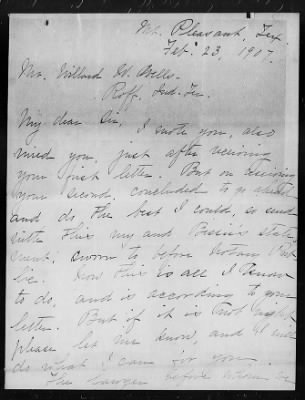 Mt. Pleasant, Tex
Feb. 23, 1907.
Mr. Willard H. Wells.
Roff, Ind. Ter.
My dear Sir,
I wrote you, also
wired you, just after receiving
your first letter. But on receiving
your second, concluded to go ahead
and do, the best I could, so send
with this my and Bessie's state
ment; sworn to before Notary Pub
lic. Now this is all I know
to do, and is according to your
letter. But if it is not right
please let me know, and I will
do what I can for you.
The lawyer before whom we